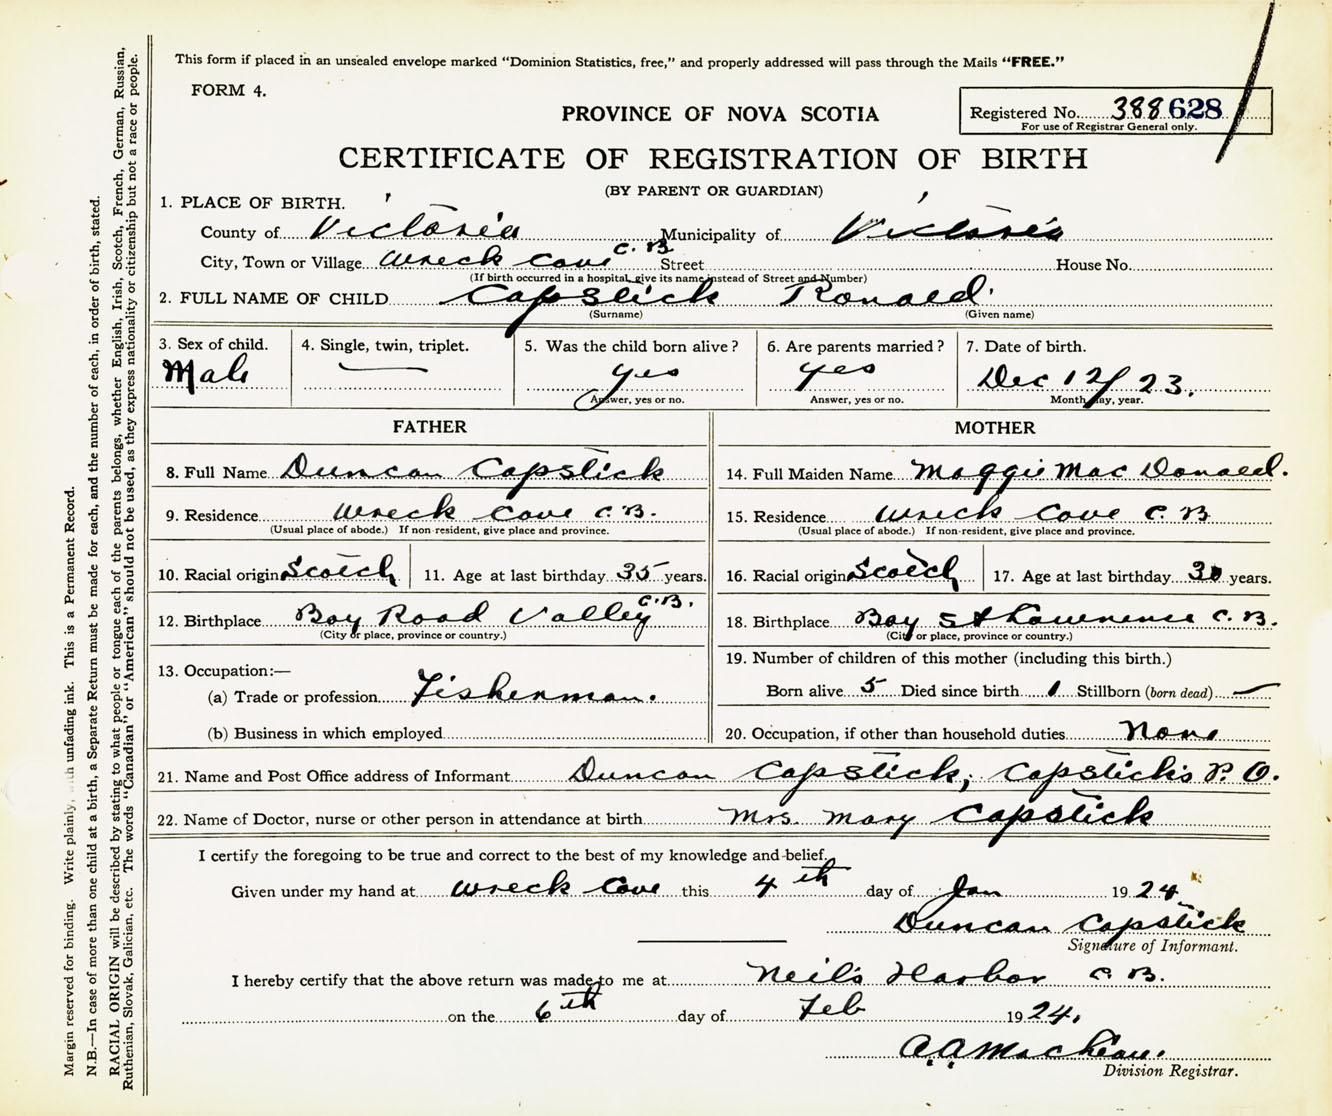 This form if placed in an unsealed envelope marked "Dominion Statistics, free," and properly addressed will pass through the Mails "FREE."
FORM 4.
PROVINCE OF NOVA SCOTIA
Registered No. 388 628
For use of Registrar General only.
CERTIFICATE OF REGISTRATION OF BIRTH
(BY PARENT OR GUARDIAN)
1. PLACE OF BIRTH.
County of Victoria Municipality of Victoria
City, Town or Village Wreck Cove C.B. Street House No.
(If birth occurred in a hospital, give its name instead of Street and Number)
2. FULL NAME OF CHILD Capstick Ronald
(Surname) (Given name)
3. Sex of child. 4. Single, twin, triplet. 5. Was the child born alive? 6. Are parents married? 7. Date of birth.
Male — yes yes Dec 12/23.
Answer, yes or no. Answer, yes or no. Month, day, year.
FATHER MOTHER
8. Full Name Duncan Capstick 14. Full Maiden Name Maggie Mac Donald.
9. Residence Wreck Cove C.B. 15. Residence Wreck Cove C.B
(Usual place of abode.) If non-resident, give place and province. (Usual place of abode.) If non-resident, give place and province.
10. Racial origin Scotch 11. Age at last birthday 35 years. 16. Racial origin Scotch 17. Age at last birthday years.
12. Birthplace Bay Road Valley C.B. 18. Birthplace Bay St Lawrence C.B.
(City or place, province or country.) (City or place, province or country.)
13. Occupation:— 19. Number of children of this mother (including this birth.)
(a) Trade or profession Fisherman. Born alive 5 Died since birth 1 Stillborn (born dead) —
(b) Business in which employed 20. Occupation, if other than household duties None
21. Name and Post Office address of Informant Duncan Capstick, Capstick's P.O.
22. Name of Doctor, nurse or other person in attendance at birth Mrs. Mary Capstick
I certify the foregoing to be true and correct to the best of my knowledge and belief.
Given under my hand at Wreck Cove this 4th day of Jan 1924
Duncan Capstick
Signature of Informant.
I hereby certify that the above return was made to me at Neil's Harbor C.B.
on the 6th day of Feb 1924.
A.A. MacLean.
Division Registrar.
Margin reserved for binding. Write plainly, with unfading ink. This is a Permanent Record.
N.B.—In case of more than one child at a birth, a Separate Return must be made for each, and the number of each, in order of birth, stated.
RACIAL ORIGIN will be described by stating to what people or tongue each of the parents belongs, whether English, Irish, Scotch, French, German, Russian,
Ruthenian, Slovak, Galician, etc. The words "Canadian" or "American" should not be used, as they express nationality or citizenship but not a race or people.